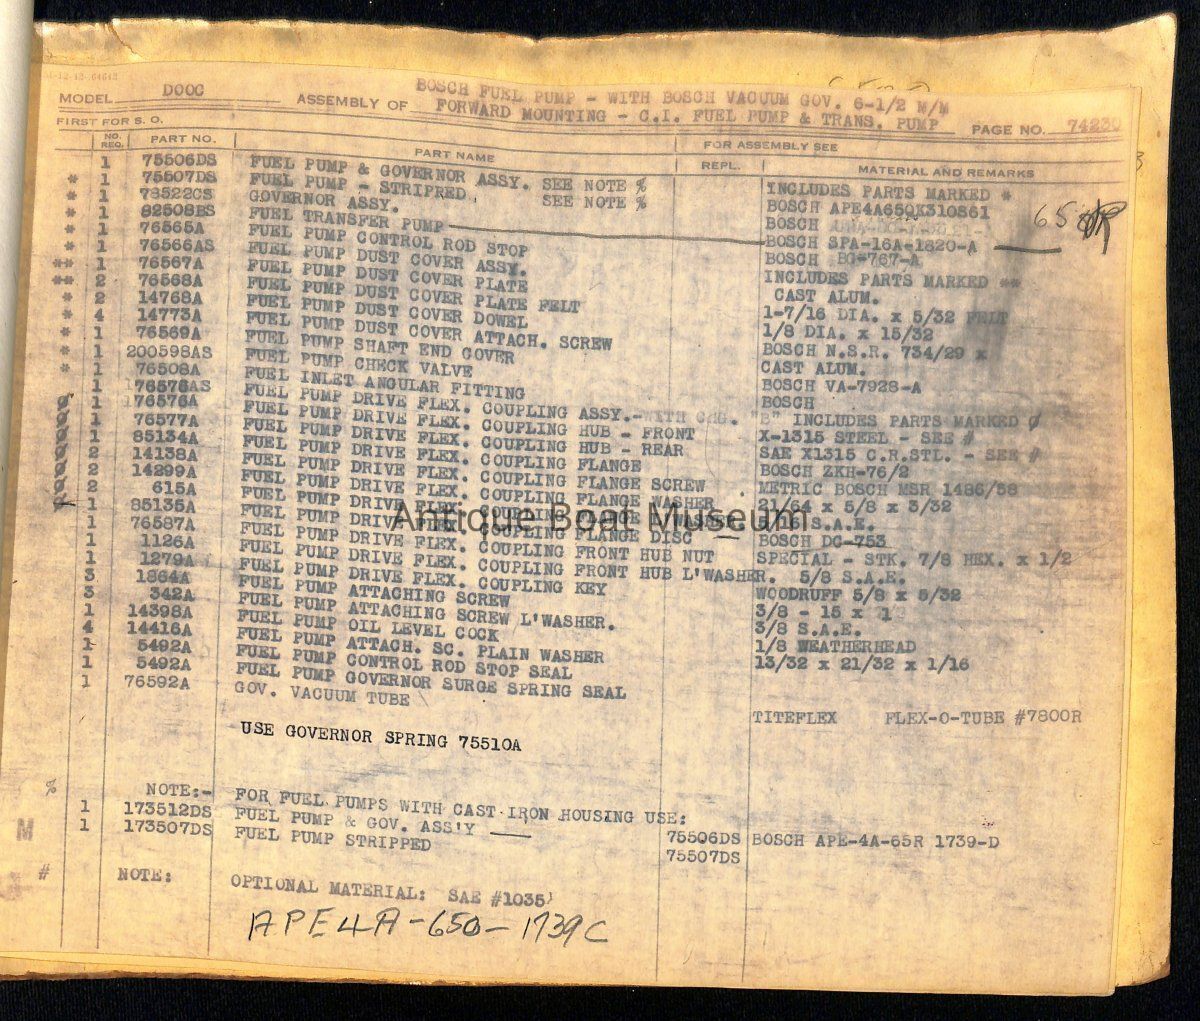 11-12-42-64643
MODEL DOOC ASSEMBLY OF BOSCH FUEL PUMP - WITH BOSCH VACUUM GOV. 6-1/2 M/M
FORWARD MOUNTING - C.I. FUEL PUMP & TRANS. PUMP PAGE NO. 74230
FIRST FOR S. O. FOR ASSEMBLY SEE
NO. REQ. PART NO. PART NAME REPL. MATERIAL AND REMARKS
1 75506DS FUEL PUMP & GOVERNOR ASSY. SEE NOTE % INCLUDES PARTS MARKED *
* 1 75507DS FUEL PUMP - STRIPRED, SEE NOTE % BOSCH APE4A65QX310S61
* 1 73522CS GOVERNOR ASSY. BOSCH
* 1 82508BS FUEL TRANSFER PUMP BOSCH SPA-16A-1820-A 65
* 1 76565A FUEL PUMP CONTROL ROD STOP BOSCH BG-767-A
* 1 76566AS FUEL PUMP DUST COVER ASSY. INCLUDES PARTS MARKED **
** 1 76567A FUEL PUMP DUST COVER PLATE CAST ALUM.
** 2 76568A FUEL PUMP DUST COVER PLATE FELT 1-7/16 DIA. x 5/32 FELT
* 2 14768A FUEL PUMP DUST COVER DOWEL 1/8 DIA. x 15/32
* 4 14773A FUEL PUMP DUST COVER ATTACH. SCREW BOSCH N.S.R. 734/29 x
* 1 76569A FUEL PUMP SHAFT END COVER CAST ALUM.
* 1 200598AS FUEL PUMP CHECK VALVE BOSCH VA-7928-A
* 1 76508A FUEL INLET ANGULAR FITTING BOSCH
1 176576AS FUEL PUMP DRIVE FLEX. COUPLING ASSY.-WITH CHG. "B" INCLUDES PARTS MARKED Ø
Ø 1 176576A FUEL PUMP DRIVE FLEX. COUPLING HUB - FRONT X-1315 STEEL - SEE #
Ø 1 76577A FUEL PUMP DRIVE FLEX. COUPLING HUB - REAR SAE X1315 C.R.STL. - SEE #
Ø 1 85134A FUEL PUMP DRIVE FLEX. COUPLING FLANGE BOSCH ZKH-76/2
Ø 2 14138A FUEL PUMP DRIVE FLEX. COUPLING FLANGE SCREW METRIC BOSCH MSR 1486/58
Ø 2 14299A FUEL PUMP DRIVE FLEX. COUPLING FLANGE WASHER 21/64 x 5/8 x 3/32
Ø 2 615A FUEL PUMP DRIVE FLEX. COUPLING FLANGE 5/16 S.A.E.
Ø 1 85135A FUEL PUMP DRIVE FLEX. COUPLING FLANGE DISC BOSCH DC-753
1 76587A FUEL PUMP DRIVE FLEX. COUPLING FRONT HUB NUT SPECIAL - STK. 7/8 HEX. x 1/2
1 1126A FUEL PUMP DRIVE FLEX. COUPLING FRONT HUB L'WASHER. 5/8 S.A.E.
1 1279A FUEL PUMP DRIVE FLEX. COUPLING KEY WOODRUFF 5/8 x 5/32
3 1864A FUEL PUMP ATTACHING SCREW 3/8 - 15 x 1
3 342A FUEL PUMP ATTACHING SCREW L'WASHER. 3/8 S.A.E.
1 14398A FUEL PUMP OIL LEVEL COCK 1/8 WEATHERHEAD
4 14416A FUEL PUMP ATTACH. SC. PLAIN WASHER 13/32 x 21/32 x 1/16
1 5492A FUEL PUMP CONTROL ROD STOP SEAL
1 5492A FUEL PUMP GOVERNOR SURGE SPRING SEAL
1 76592A GOV. VACUUM TUBE TITEFLEX FLEX-O-TUBE #7800R
Antique Boat Museum
USE GOVERNOR SPRING 75510A
% NOTE:- FOR FUEL PUMPS WITH CAST IRON HOUSING USE:
1 173512DS FUEL PUMP & GOV. ASS'Y 75506DS BOSCH APE-4A-65R 1739-D
M 1 173507DS FUEL PUMP STRIPPED 75507DS
# NOTE: OPTIONAL MATERIAL: SAE #1035
APE4A-650-1739C